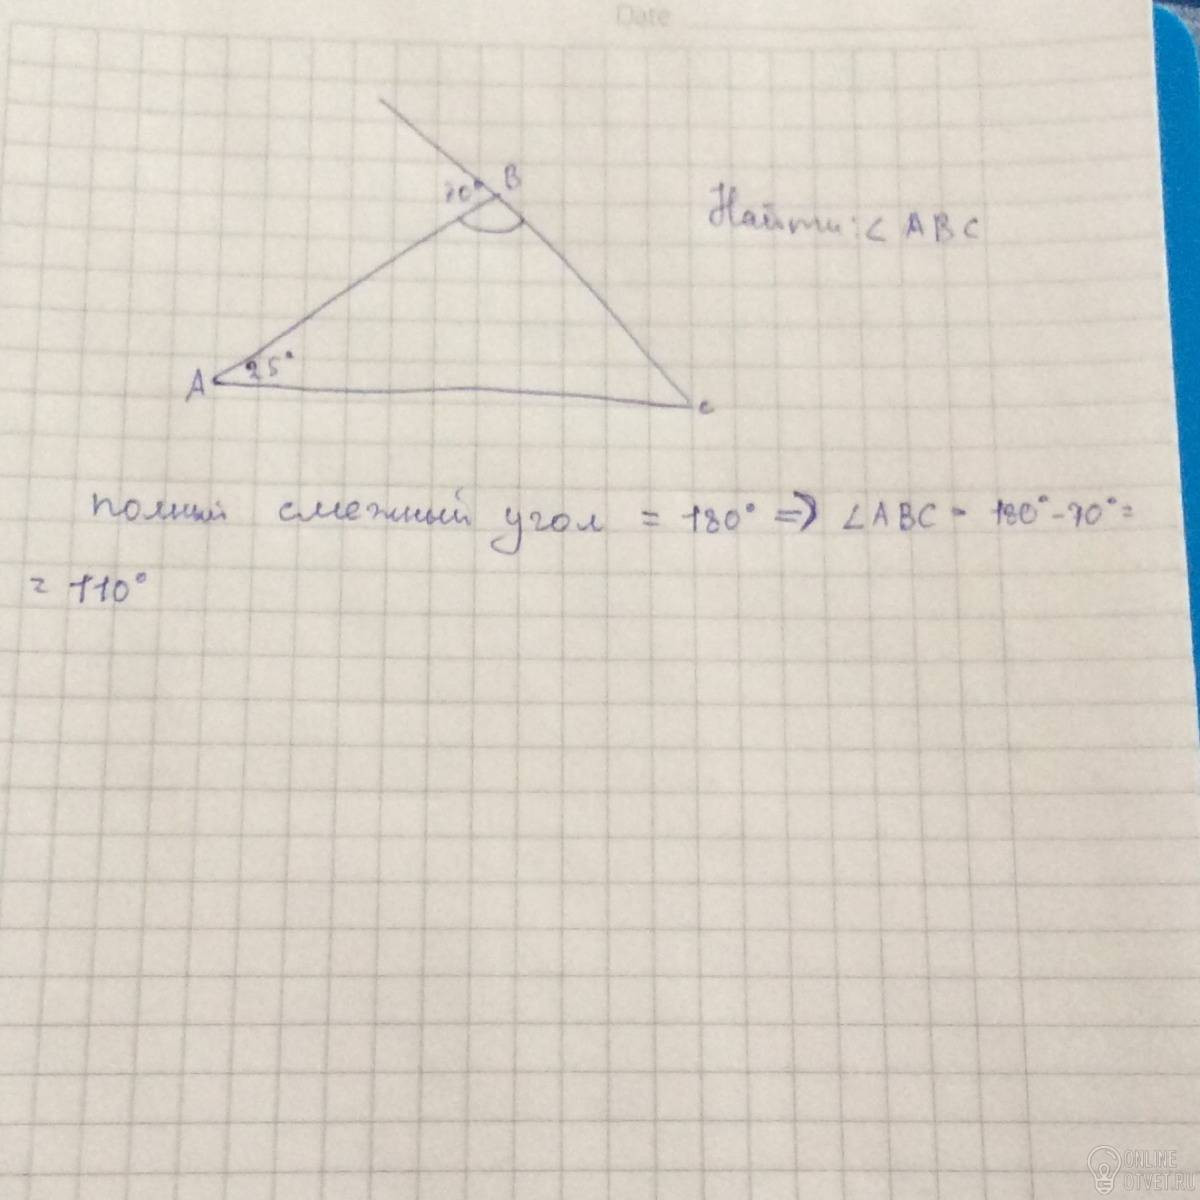 Date
B
70°
Найти: ∠ ABC
A
25°
C
полный смежный угол = 180° => ∠ABC = 180° - 70° =
= 110°
ONLINE
OTVET.RU